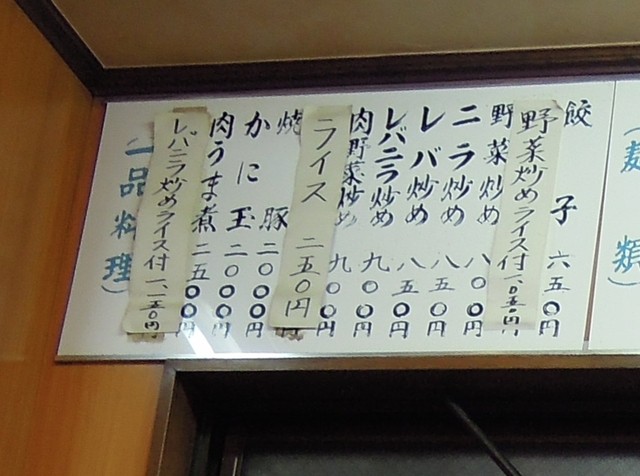 （麺類）
餃子 六五〇円
野菜炒めライス付 一、〇五〇円
野菜炒め 八〇〇円
ニラ炒め 八五〇円
レバ炒め 八五〇円
レバニラ炒め 九〇〇円
肉野菜炒め 九〇〇円
ライス 二五〇円
焼豚 二〇〇〇円
かに玉 二〇〇〇円
肉うま煮 二五〇〇円
レバニラ炒めライス付 一、一五〇円
（一品料理）